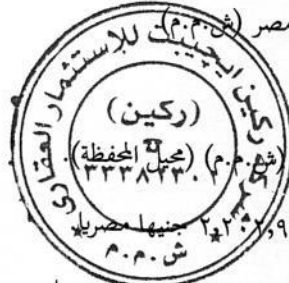 مصر (ش.م.م)
ركين ايجيبت للإستثمار العقارى
(ركين)
(ش.م.م) (محيل المحفظة).
جنيها مصريا
ش.م.م